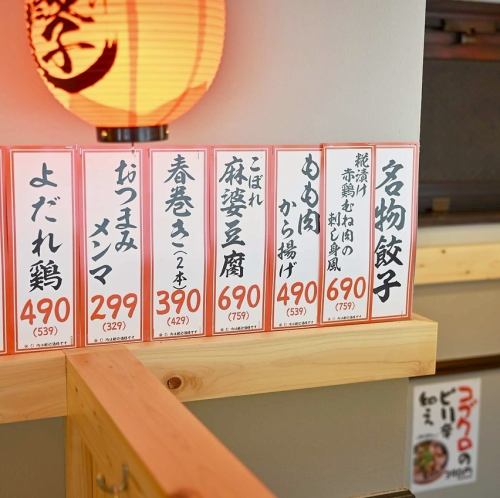 餃子
名物餃子
糀漬け
赤鶏むね肉の
刺し身風
690
(759)
もも肉
から揚げ
490
(539)
こぼれ
麻婆豆腐
690
(759)
春巻き(2本)
390
(429)
おつまみ
メンマ
299
(329)
よだれ鶏
490
(539)
コブクロの
ピリ辛
和え